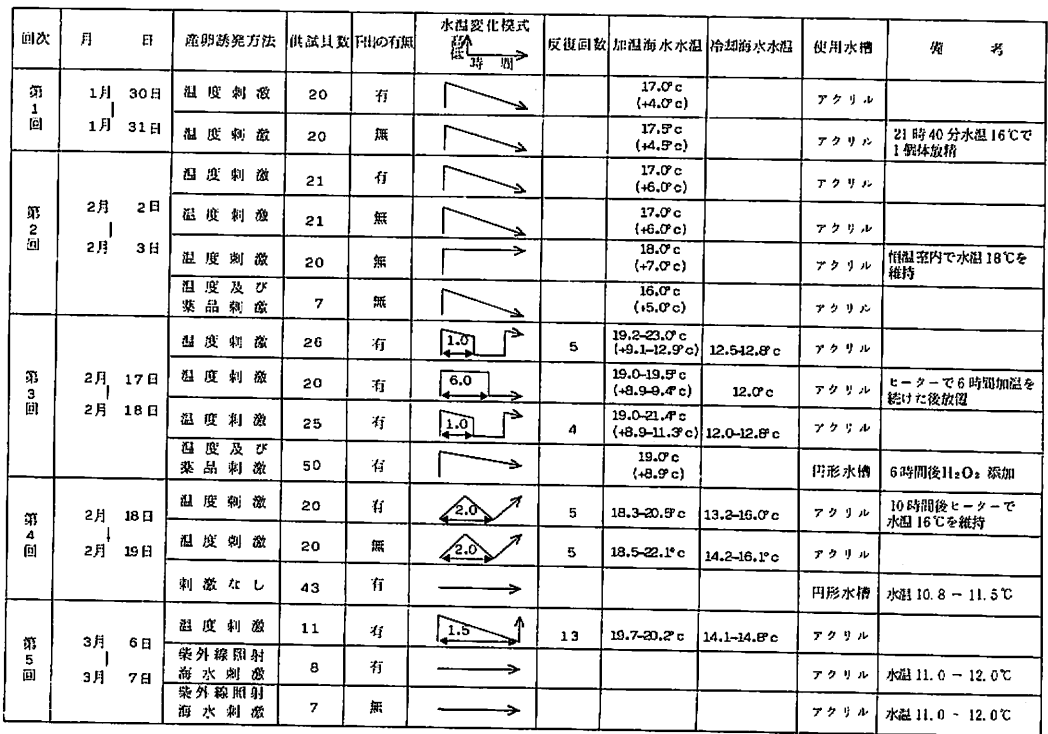 回次 月 日 産卵誘発方法 供試貝数 干出の有無 水温変化模式 高 低 時間 反復回数 加温海水水温 冷却海水水温 使用水槽 備考
第1回 1月30日 | 1月31日
温度刺激 20 有 17.0°c (+4.0°c) アクリル
温度刺激 20 無 17.5°c (+4.5°c) アクリル 21時40分水温16℃で1個体放精
第2回 2月2日 | 2月3日
温度刺激 21 有 17.0°c (+6.0°c) アクリル
温度刺激 21 無 17.0°c (+6.0°c) アクリル
温度刺激 20 無 18.0°c (+7.0°c) アクリル 恒温室内で水温18℃を維持
温度及び薬品刺激 7 無 16.0°c (+5.0°c) アクリル
第3回 2月17日 | 2月18日
温度刺激 26 有 1.0 5 19.2-23.0°c (+9.1-12.9°c) 12.5-12.8°c アクリル
温度刺激 20 有 6.0 19.0-19.5°c (+8.9-9.4°c) 12.0°c アクリル ヒーターで6時間加温を続けた後放置
温度刺激 25 有 1.0 4 19.0-21.4°c (+8.9-11.3°c) 12.0-12.8°c アクリル
温度及び薬品刺激 50 有 19.0°c (+8.9°c) 円形水槽 6時間後H₂O₂添加
第4回 2月18日 | 2月19日
温度刺激 20 有 2.0 5 18.3-20.5°c 13.2-16.0°c アクリル 10時間後ヒーターで水温16℃を維持
温度刺激 20 無 2.0 5 18.5-22.1°c 14.2-16.1°c アクリル
刺激なし 43 有 円形水槽 水温10.8－11.5℃
第5回 3月6日 | 3月7日
温度刺激 11 有 1.5 13 19.7-20.2°c 14.1-14.8°c アクリル
紫外線照射海水刺激 8 有 アクリル 水温11.0－12.0℃
紫外線照射海水刺激 7 無 アクリル 水温11.0 - 12.0℃